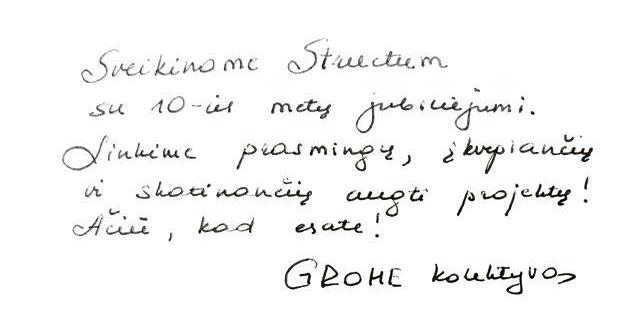 Sveikiname Structum
su 10-ies metų jubiliejumi.
Linkime prasmingų, įkvepiančių
ir skatinančių augti projektų!
Ačiū, kad esate!
GROHE kolektyvas